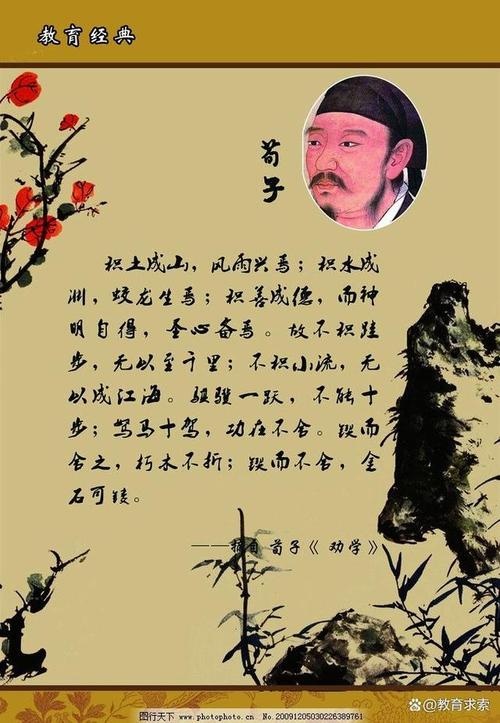 教育经典
荀子
积土成山，风雨兴焉；积水成
渊，蛟龙生焉；积善成德，而神
明自得，圣心备焉。故不积跬
步，无以至千里；不积小流，无
以成江海。骐骥一跃，不能十
步；驽马十驾，功在不舍。锲而
舍之，朽木不折；锲而不舍，金
石可镂。
——摘自 荀子《 劝学》
图片大图网 www.photophoto.cn No.20091205030226389761
@教育求索